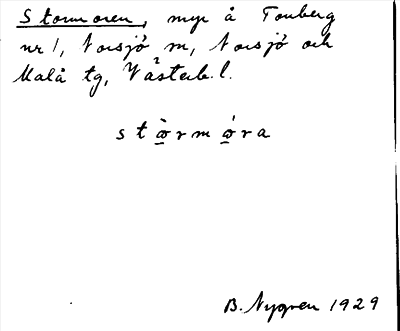 Stormoren, myr å Tonberg
nr 1, Norsjö sn, Norsjö och
Malå tg, Västerb. l.
stòrmóra
B. Nygren 1929